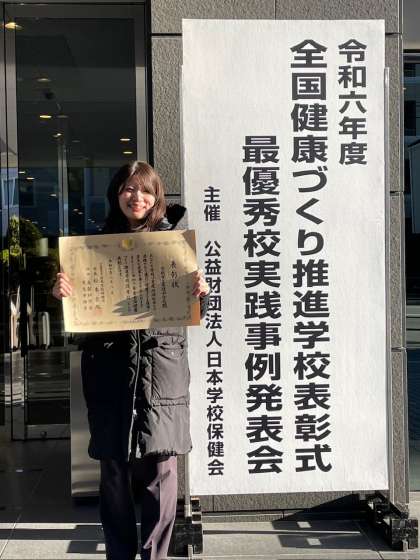 令和六年度
全国健康づくり推進学校表彰式
最優秀校実践事例発表会
主催　公益財団法人日本学校保健会
表彰状